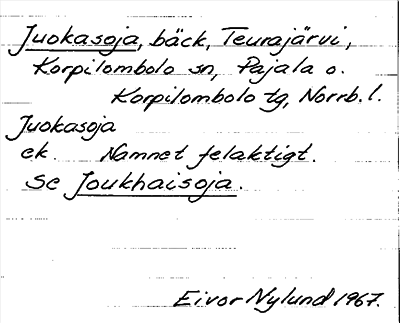 Juokasoja, bäck, Teurajärvi,
Korpilombolo sn, Pajala o.
Korpilombolo tg, Norrb. l.
Juokasoja
ek. Namnet felaktigt.
Se Joukhaisoja.
Eivor Nylund 1967.